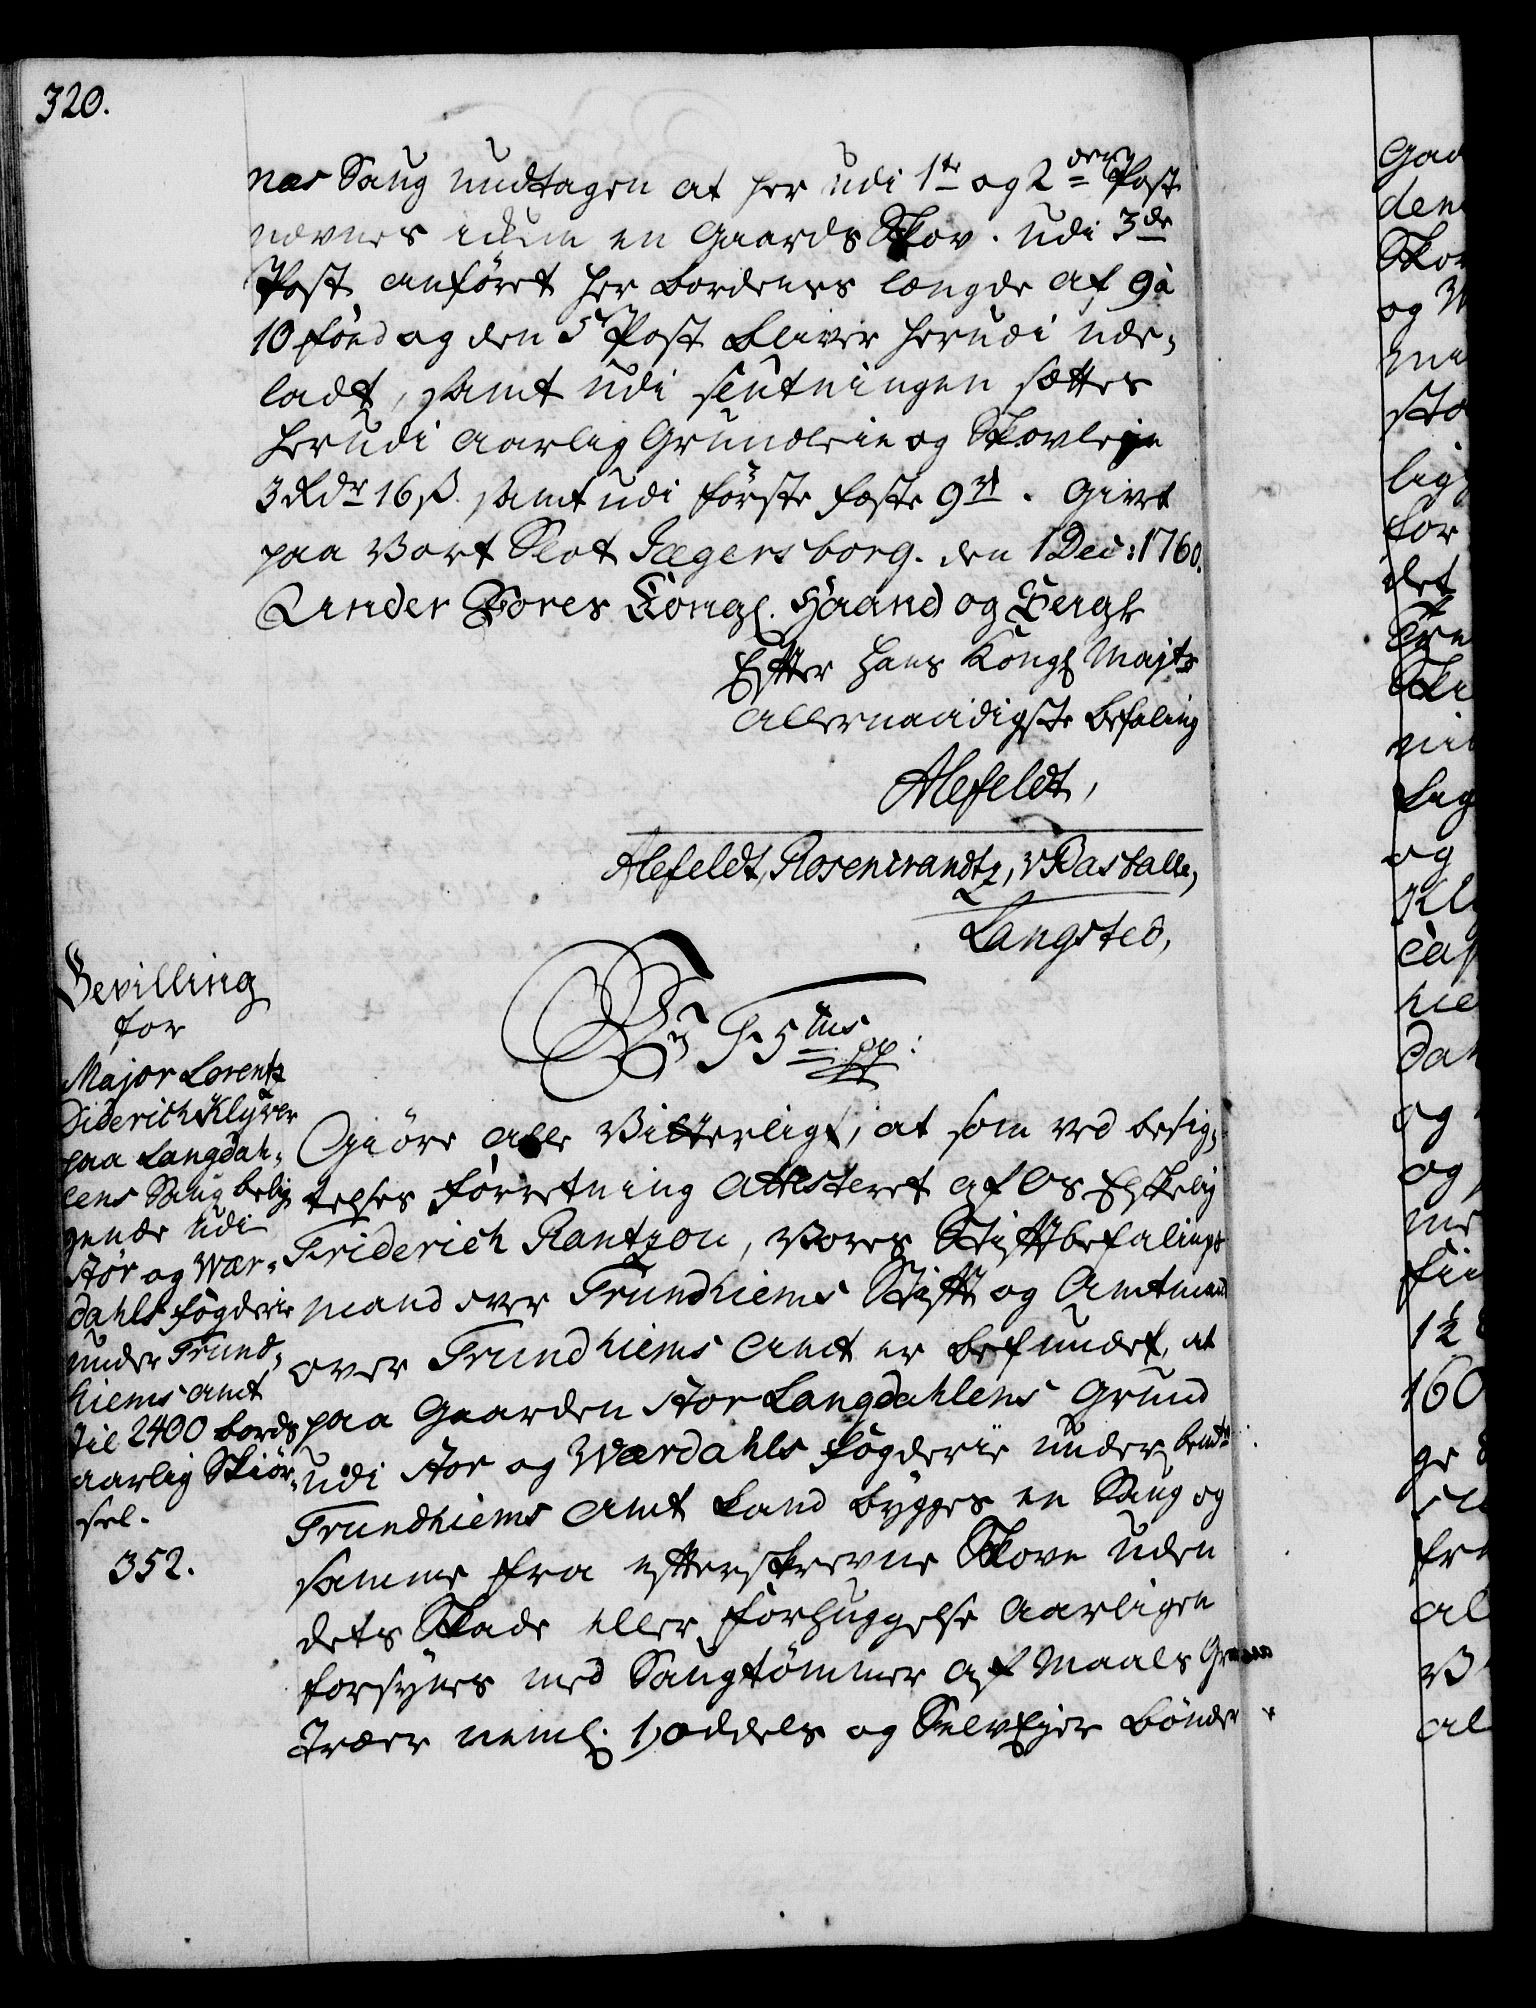 320.
næs Saug undtagen at her udi 1te og 2den Post
nævnes ickun en Gaards Skov. udi 3de
Post anføret her Bordenes længde af 9 à
10 fod og den 5 Post bliver herudi ude-
ladt, samt udi slutningen sættes
herudi aarlig Grundleie og Skovleje
3 Rdr 16 ß. samt udi første fæste 9 rd. Givet
paa Vort Slot Jægersborg. den 1 Dec: 1760.
Under Vores Kongl. Haand og Seigl
Efter Hans Kongl Majts
allernaadigste befaling
Alefeldt,
Alefeldt, Rosencrandtz, v Rastalle,
Langsted,
Bevilling
for
Major Lorentz
Diderich Klyver
paa Langdah-
lens Saug belig
gende udi
Stør og Wær-
dahls fogderie
under Trund-
hiems Amt
til 2400 bords
aarlig Skiør-
sel.
352.
Vy F 5tus pp:
Giøre Alle Vitterligt, at som ved besig-
telses forretning Attesteret af Os Elskelig
Friderich Rantzou, Vores Stiftbefalings
mand over Trundhiems Stift og Amtmand
over Trundhiems Amt er befundet, at
paa Gaarden Stor Langdahlens Grund
udi Stør og Wærdahls fogderie under bemte
Trundhiems Amt kand bygges en Saug og
samme fra efterskrevne Skove uden
dets Skade eller forhuggelse Aarligen
forsynes med Saugtømmer af Maals
Træer neml. 1, Oddels og SelvEjer bønder